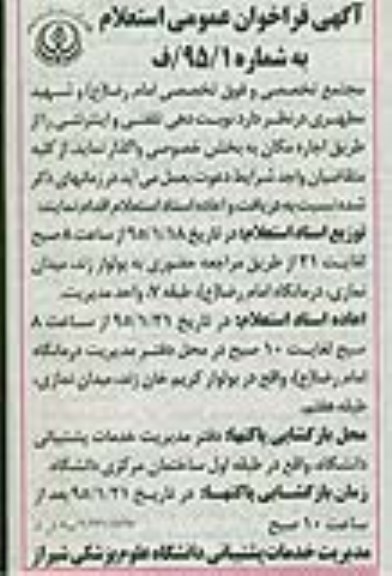 آگهی فراخوان عمومی استعلام
به شماره ۹۵/۱/ف
مجتمع تخصصی و فوق تخصصی امام رضا(ع) و شهید
مطهری در نظر دارد نوبت دهی تلفنی و اینترنتی را از
طریق اجاره مکان به بخش خصوصی واگذار نماید. از کلیه
متقاضیان واجد شرایط دعوت بعمل می آید در زمانهای ذکر
شده نسبت به دریافت و اعاده اسناد استعلام اقدام نمایند:
توزیع اسناد استعلام: در تاریخ ۹۵/۶/۱۸ از ساعت ۸ صبح
لغایت ۲۱ از طریق مراجعه حضوری به بولوار زند، میدان
نمازی، درمانگاه امام رضا(ع)، طبقه ۷، واحد مدیریت.
اعاده اسناد استعلام: در تاریخ ۹۵/۶/۲۱ از ساعت ۸
صبح لغایت ۱۰ صبح در محل دفتر مدیریت درمانگاه
امام رضا(ع)، واقع در بولوار کریم خان زند، میدان نمازی،
طبقه هفتم.
محل بازگشایی پاکتها: دفتر مدیریت خدمات پشتیبانی
دانشگاه، واقع در طبقه اول ساختمان مرکزی دانشگاه.
زمان بازگشایی پاکتها: در تاریخ ۹۵/۶/۲۱ بعد از
ساعت ۱۰ صبح
مدیریت خدمات پشتیبانی دانشگاه علوم پزشکی شیراز